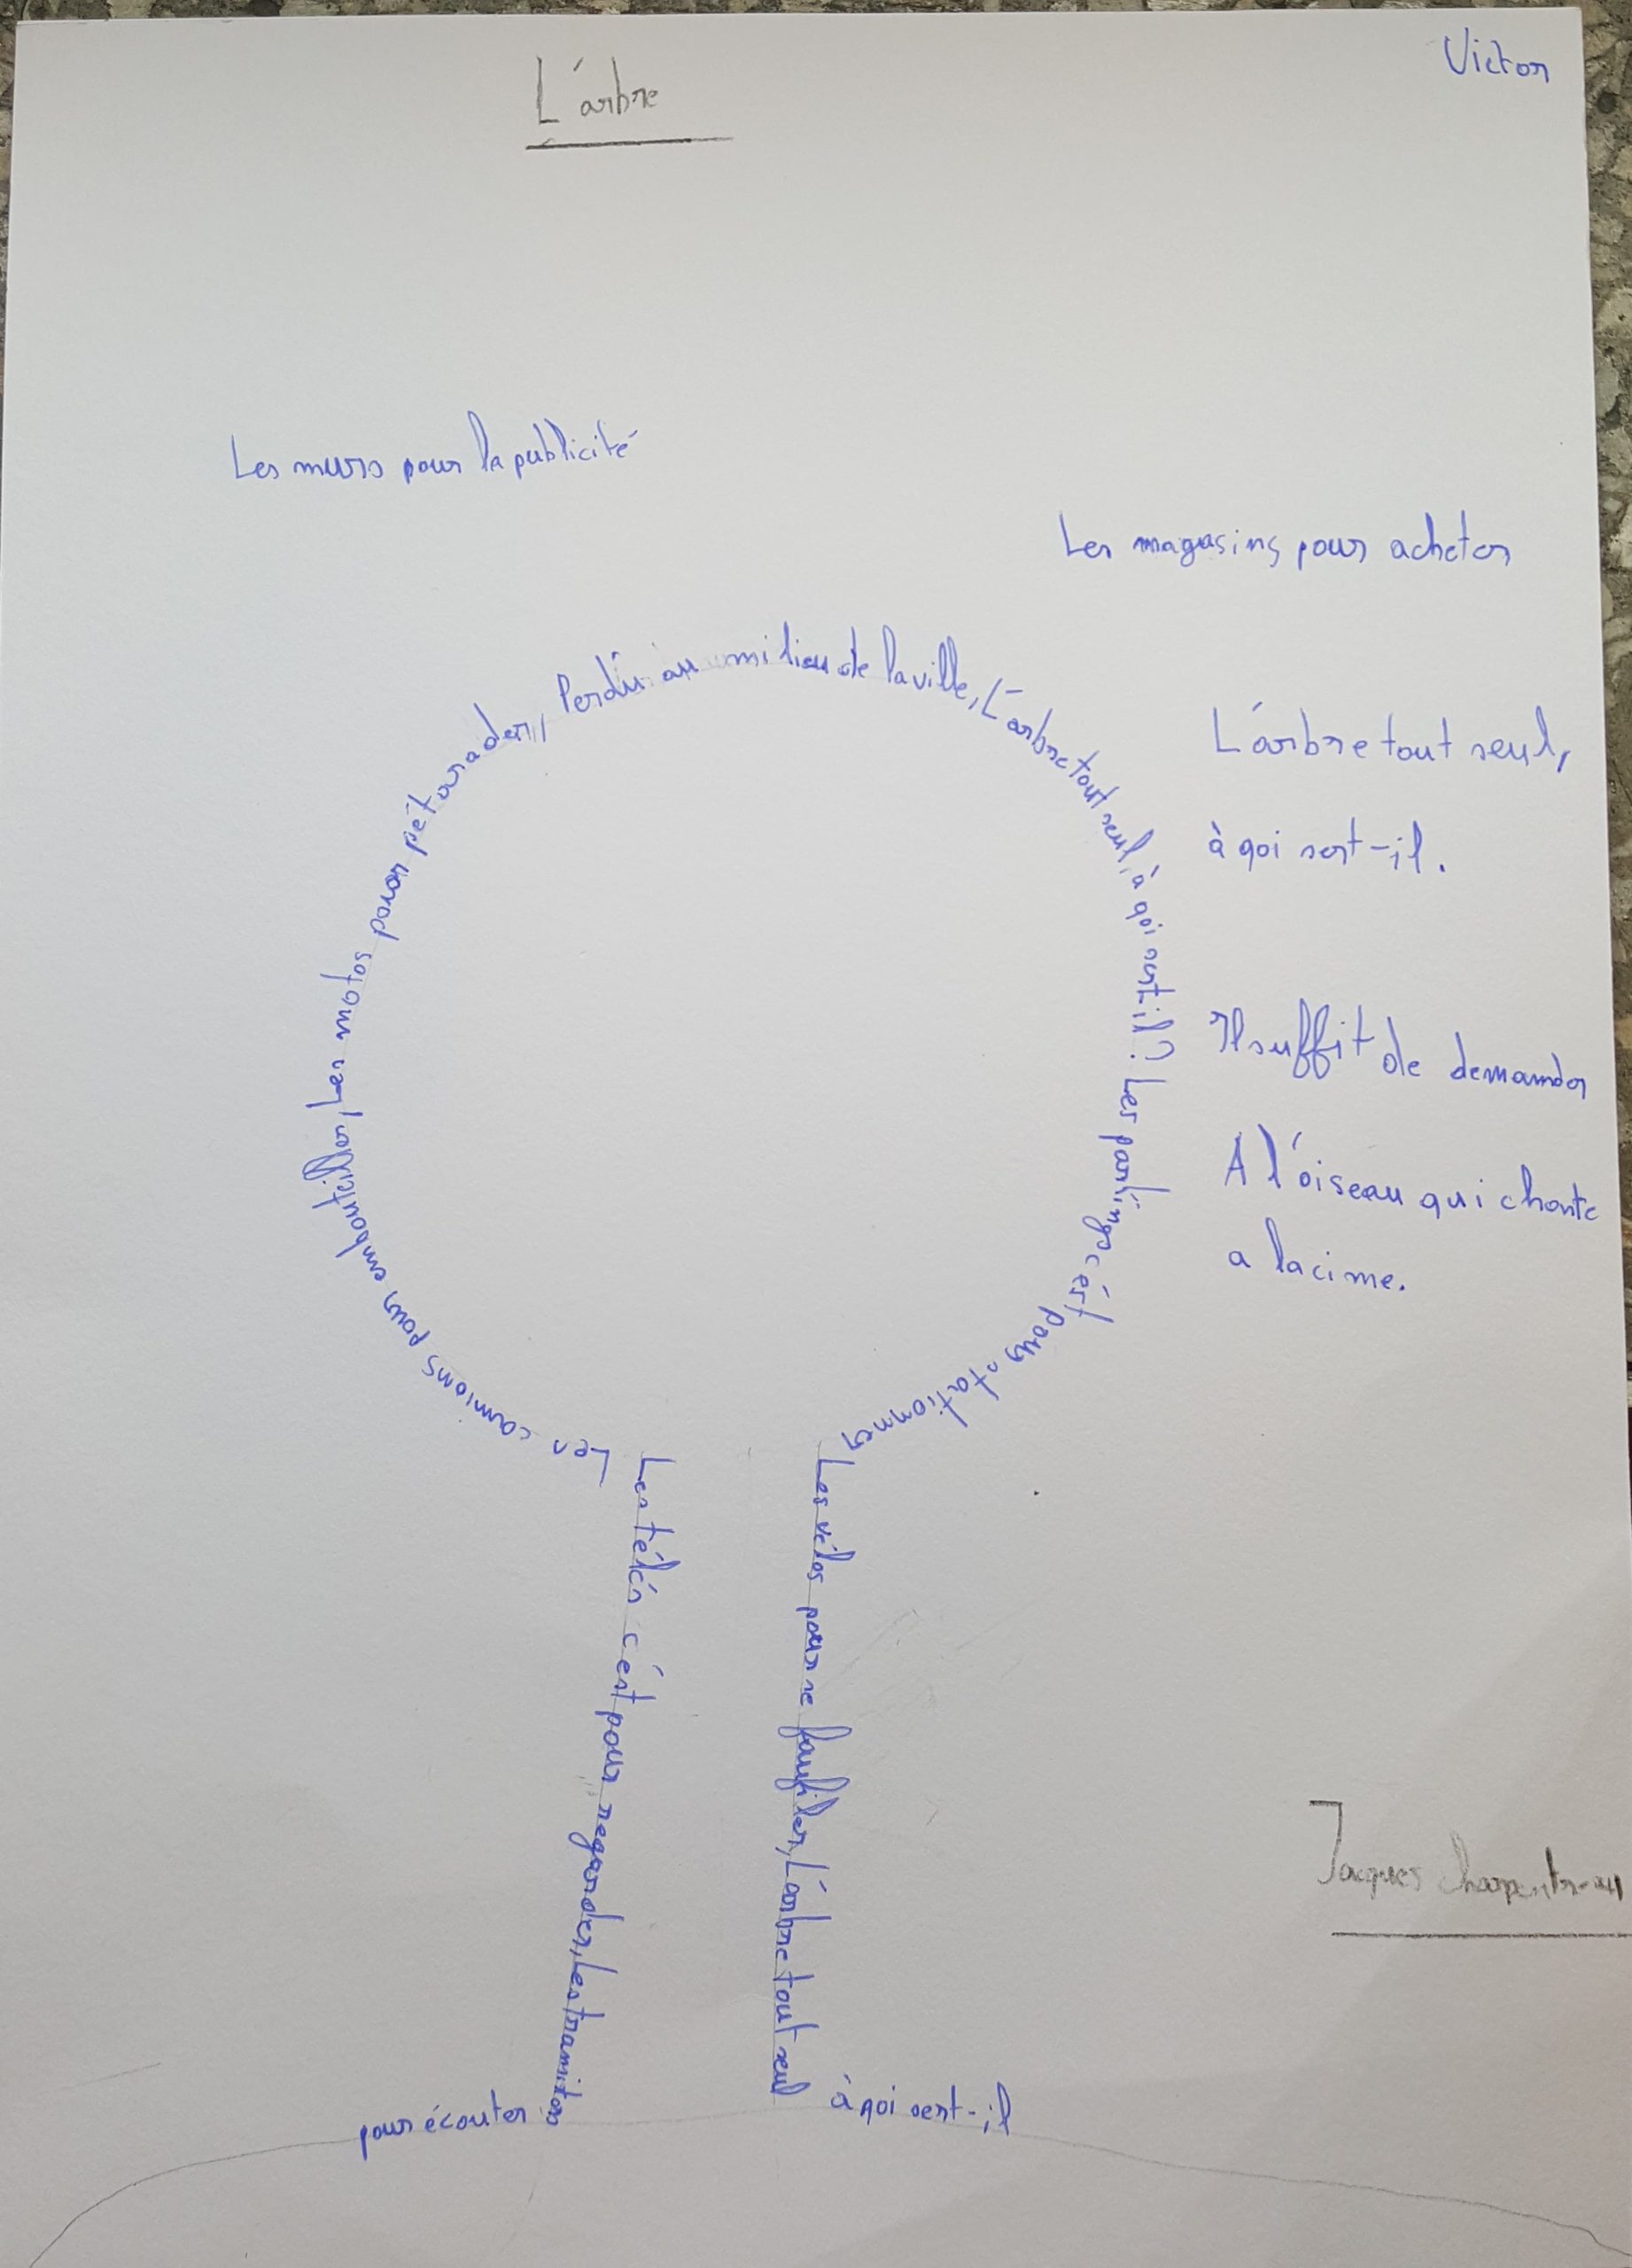 Victor
L'arbre
Les murs pour la publicité
Les magasins pour acheter
Perdu au milieu de la ville, L'arbre tout seul, à qoi sert-il? Les parkings c'est pour stationner
Les vélos pour se faufiler, L'arbre tout seul
à qoi sert-il
Les camions pour embouteiller, Les motos pour pétarader,
Les télés c'est pour regarder, Les transistors
pour écouter
L'arbre tout seul,
à qoi sert-il.
Il suffit de demander
A l'oiseau qui chante
a la cime.
Jacques charpentreau